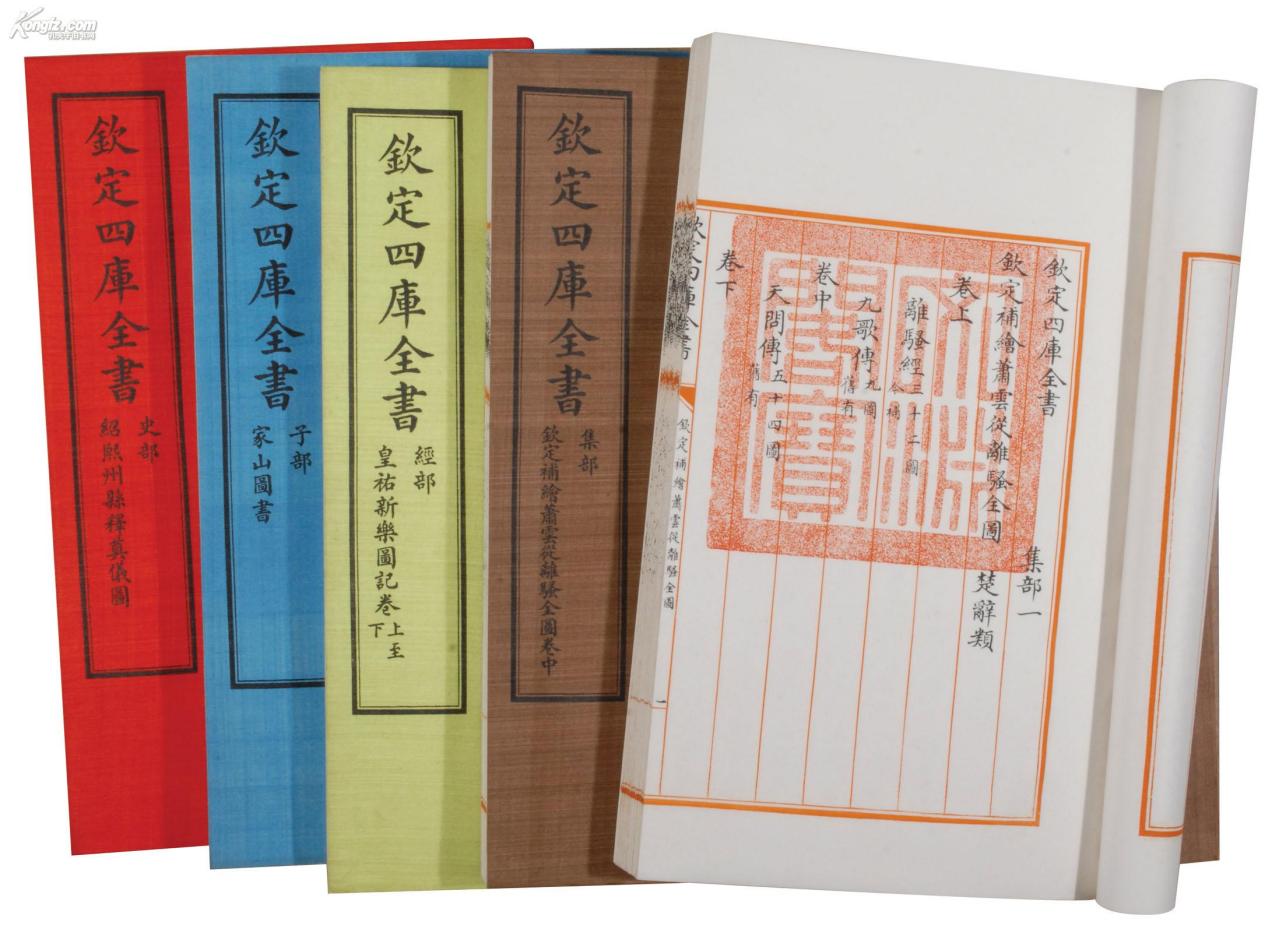 Kongfz.com
孔夫子旧书网
欽定四庫全書
史部
紹熙州縣釋奠儀圖
欽定四庫全書
子部
家山圖書
欽定四庫全書
經部
皇祐新樂圖記卷上至
下
欽定四庫全書
集部
欽定補繪蕭雲從離騷全圖卷中
欽定四庫全書 集部一
欽定補繪蕭雲從離騷全圖 楚辭類
卷上
離騷經三十二圖
今補
九歌傳九圖
舊有
卷中
天問傳五十四圖
舊有
卷下
欽定四庫全書
欽定補繪蕭雲從離騷全圖
一